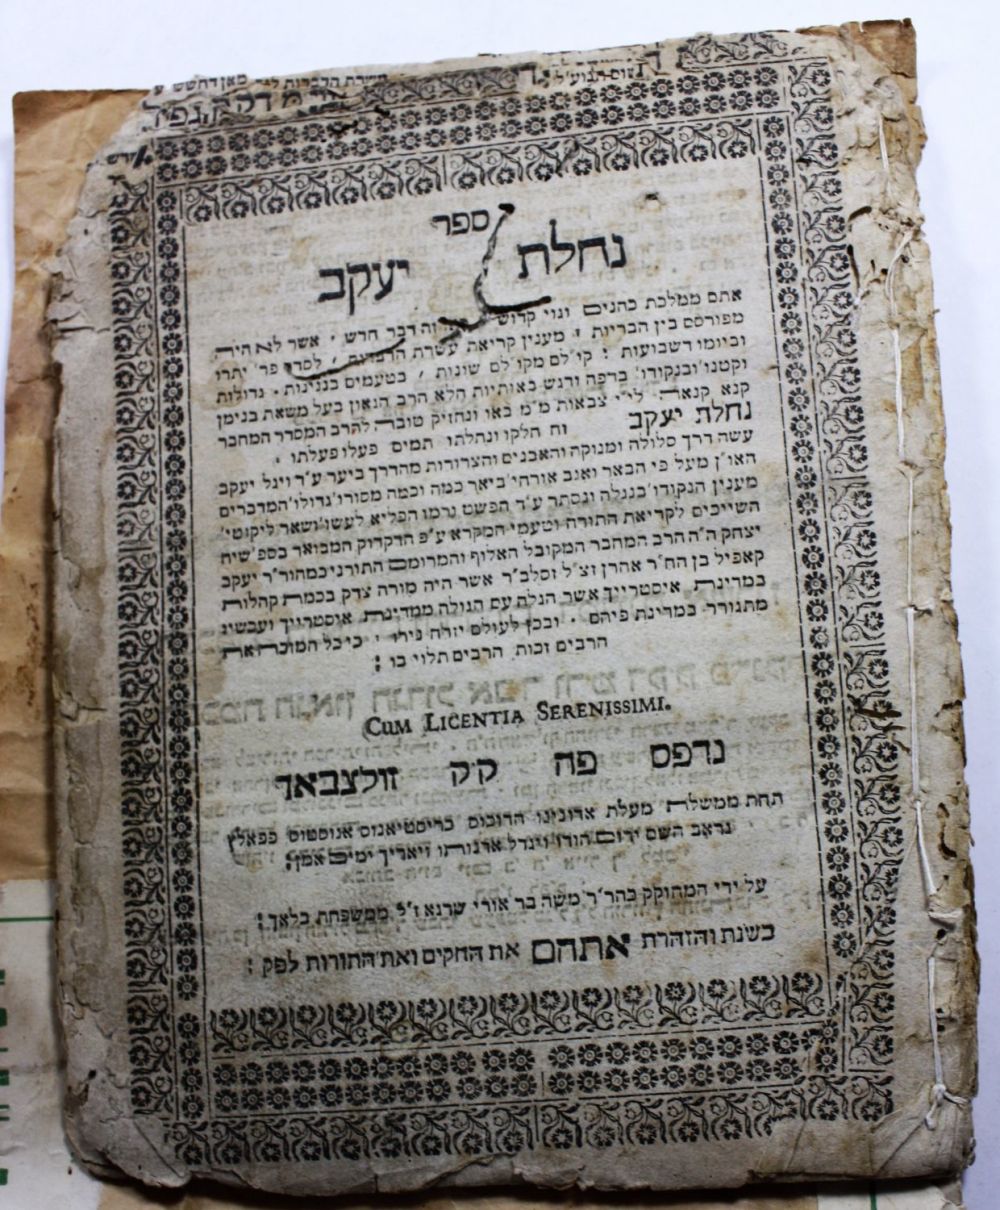 ספר
נחלת יעקב
אתם ממלכת כהנים וגוי קדוש זה דבר חדש ׳ אשר לא היה
מפורסם בין הבריות ׳ מענין קריאת עשרת הדברות ׳ לסדר פר׳ יתרו
וביומו דשבועות ׳ קו׳לם מקו׳לם שונות ׳ בטעמים בנגינות ׳ גדולות
וקטנו׳ ובנקודו׳ ברפה ורגש באותיות הלא הרב הגאון בעל משאת בנימן
קנא קנאה לי״י צבאות מ״מ באו ונחזיק טובה להרב המסדר המחבר
נחלת יעקב זה חלקו ונחלתו תמים פעלו פעלתו ׳
עשה דרך סלולה ומנוקה והאבנים והצרורות מהדרך ביער ע״ד ויגל יעקב
האו״ן מעל פי הבאר ואגב אורחי׳ ביאר כמה וכמה מסורו׳ גדולו׳ המדברים
מענין הנקודו׳ בנגלה ונסתר ע״ד הפשט גרמו הפליא לעשו׳ ושאר ליקוטי׳
השייכים לקריאת התורה וטעמי המקרא ע״פ הדקדוק המבואר בספ׳ שיח
יצחק ה״ה הרב המחבר המקובל האלוף והמרומם התורני כמהור״ר יעקב
קאפיל בן הח״ר אהרן זצ״ל זסלב״ר אשר היה מורה צדק בכמה קהלות
במדינת איסטרייך אשר הגלה עם הגולה ממדינת איסטרייך ועכשיו
מתגורר במדינת פיהם ׳ ובכן לעולם יזרה נירו ׳ כי כל המזכה את
הרבים זכות הרבים תלוי בו :
CUM LICENTIA SERENISSIMI.
נדפס פה ק״ק זולצבאך
תחת ממשלת מעלת אדונינו הדוכוס כריסטיאנוס אגוסטוס פפאלץ
גראב השם ירום הודו ויגדל אדנותו ויאריך ימים אמן :
על ידי המחוקק כהר״ר משה בר אורי שרגא ז״ל ממשפחת בלאך :
בשנת והזהרת אתהם את החקים ואת התורות לפק :